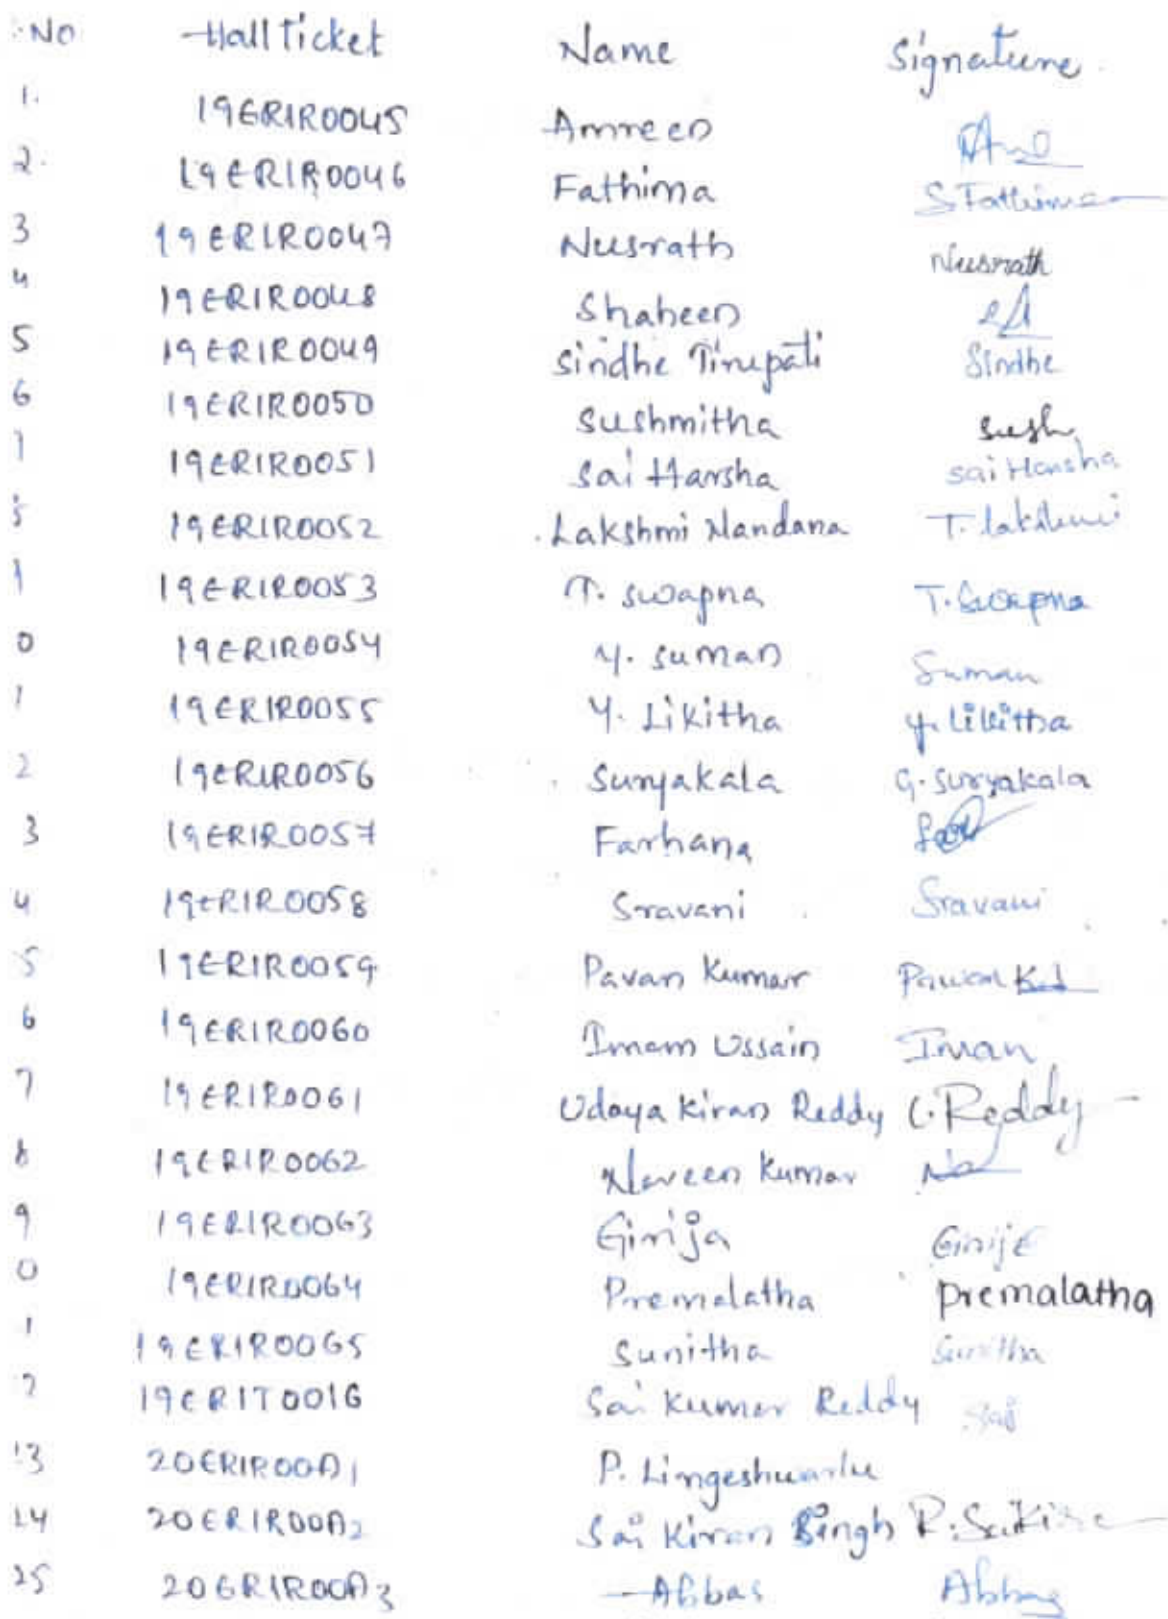 NO Hall Ticket Name Signature
1. 19ERIR0045 Amreen
2. 19ERIR0046 Fathima S Fathima
3 19ERIR0047 Nusrath Nusrath
4 19ERIR0048 Shaheen
5 19ERIR0049 Sindhe Tirupati Sindhe
6 19ERIR0050 Sushmitha Sush
7 19ERIR0051 Sai Harsha Sai Harsha
19ERIR0052 Lakshmi Nandana T. lakshmi
19ERIR0053 T. Swapna T. Swapna
0 19ERIR0054 Y. Suman Suman
1 19ERIR0055 Y. Likitha Y. Likitha
2 19ERIR0056 Suryakala G. Suryakala
3 19ERIR0057 Farhana
4 19ERIR0058 Sravani Sravani
5 19ERIR0059 Pavan Kumar Pawan
6 19ERIR0060 Imam Ussain Iman
7 19ERIR0061 Udaya Kiran Reddy Reddy
8 19ERIR0062 Naveen Kumar
9 19ERIR0063 Girija Girija
0 19ERIR0064 Premalatha Premalatha
1 19ERIR0065 Sunitha Sunitha
2 19ERIT0016 Sai Kumar Reddy Sai
13 20ERIR00A1 P. Lingeshwarlu
24 20ERIR00A2 Sai Kiran Singh R. Sai Kiran
25 20ERIR00A3 Abbas Abbas